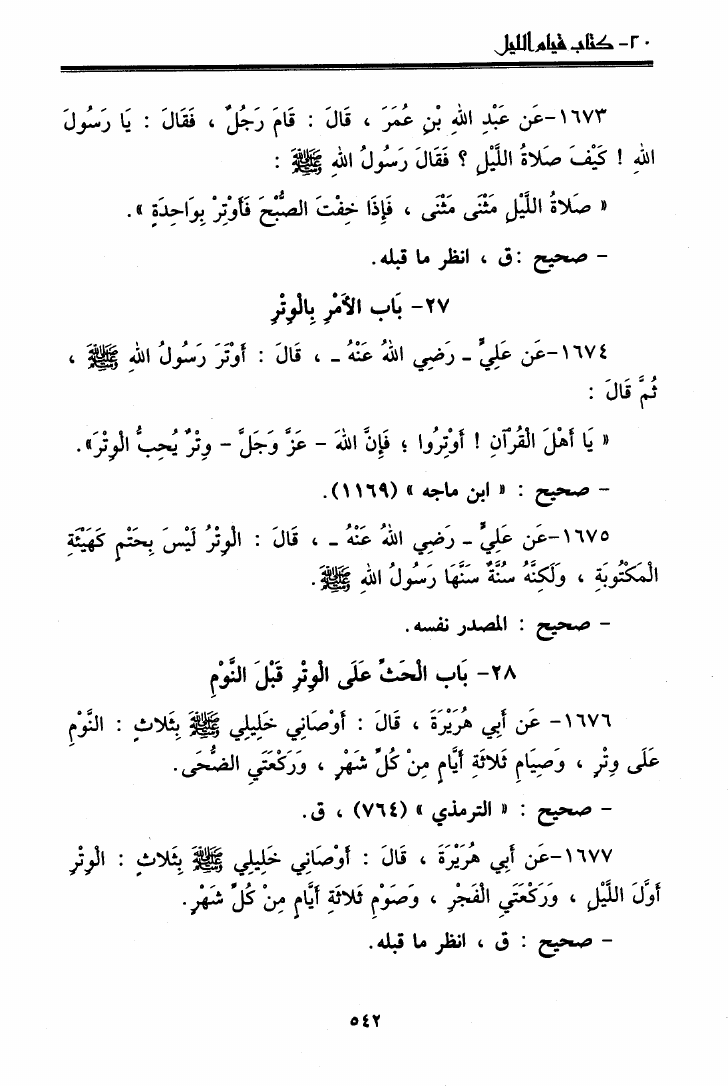 ٢٠- كتاب قيام الليل
١٦٧٣-عَن عَبْدِ اللهِ بْنِ عُمَرَ ، قَالَ : قَامَ رَجُلٌ ، فَقَالَ : يَا رَسُولَ
اللهِ ! كَيْفَ صَلاَةُ اللَّيْلِ ؟ فَقَالَ رَسُولُ اللهِ ﷺ :
« صَلاَةُ اللَّيْلِ مَثْنَى مَثْنَى ، فَإِذَا خِفْتَ الصُّبْحَ فَأَوْتِرْ بِوَاحِدَةٍ ».
- صحيح :ق ، انظر ما قبله.
٢٧- بَاب الأَمْرِ بِالْوِتْرِ
١٦٧٤-عَن عَلِيٍّ ـ رَضِي اللهُ عَنْهُ ـ ، قَالَ : أَوْتَرَ رَسُولُ اللهِ ﷺ ،
ثُمَّ قَالَ :
« يَا أَهْلَ الْقُرْآنِ ! أَوْتِرُوا ؛ فَإِنَّ اللهَ - عَزَّ وَجَلَّ - وِتْرٌ يُحِبُّ الْوِتْرَ».
- صحيح : « ابن ماجه » (١١٦٩).
١٦٧٥-عَن عَلِيٍّ ـ رَضِي اللهُ عَنْهُ ـ ، قَالَ : الْوِتْرُ لَيْسَ بِحَتْمٍ كَهَيْئَةِ
الْمَكْتُوبَةِ ، وَلَكِنَّهُ سُنَّةٌ سَنَّهَا رَسُولُ اللهِ ﷺ.
- صحيح : المصدر نفسه.
٢٨- بَاب الْحَثِّ عَلَى الْوِتْرِ قَبْلَ النَّوْمِ
١٦٧٦- عَن أَبِي هُرَيْرَةَ ، قَالَ : أَوْصَانِي خَلِيلِي ﷺ بِثَلاَثٍ : النَّوْمِ
عَلَى وِتْرٍ ، وَصِيَامِ ثَلاَثَةِ أَيَّامٍ مِنْ كُلِّ شَهْرٍ ، وَرَكْعَتَيِ الضُّحَى.
- صحيح : « الترمذي » (٧٦٤) ، ق.
١٦٧٧-عَن أَبِي هُرَيْرَةَ ، قَالَ : أَوْصَانِي خَلِيلِي ﷺ بِثَلاَثٍ : الْوِتْرِ
أَوَّلَ اللَّيْلِ ، وَرَكْعَتَيِ الْفَجْرِ ، وَصَوْمِ ثَلاَثَةِ أَيَّامٍ مِنْ كُلِّ شَهْرٍ.
- صحيح : ق ، انظر ما قبله.
٥٤٢